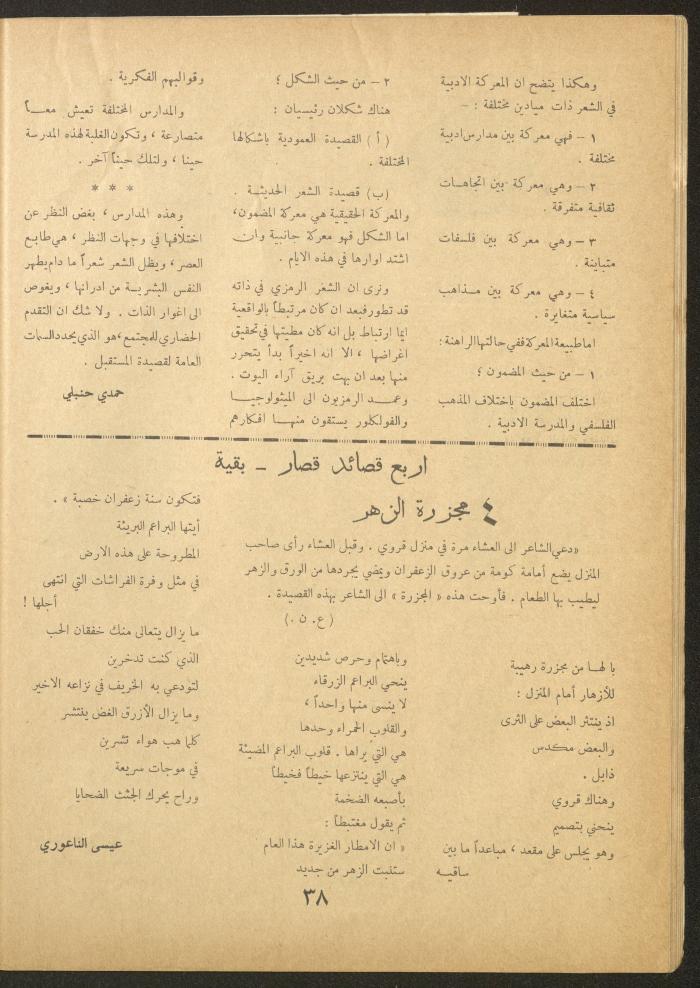 وهكذا يتضح ان المعركة الادبية
في الشعر ذات ميادين مختلفة : –
١ – فهي معركة بين مدارس ادبية
مختلفة .
٢ – وهي معركة بين اتجاهات
ثقافية متفرقة .
٣ – وهي معركة بين فلسفات
متباينة .
٤ – وهي معركة بين مذاهب
سياسية متغايرة .
اما طبيعة المعركة ففي حالتها الراهنة :
١ – من حيث المضمون ؛
اختلف المضمون باختلاف المذهب
الفلسفي والمدرسة الادبية .
٢ – من حيث الشكل ؛
هناك شكلان رئيسيان :
( أ ) القصيدة العمودية باشكالها
المختلفة .
(ب) قصيدة الشعر الحديثة .
والمعركة الحقيقية هي معركة المضمون،
اما الشكل فهو معركة جانبية وان
اشتد اوارها في هذه الايام .
ونرى ان الشعر الرمزي في ذاته
قد تطور فبعد ان كان مرتبطاً بالواقعية
ايما ارتباط بل انه كان مطيتها في تحقيق
اغراضها ، الا انه اخيراً بدأ يتحرر
منها بعد ان بهت بريق آراء اليوت .
وعمد الرمزيون الى الميثولوجيا
والفولكلور يستقون منها افكارهم
وقوالبهم الفكرية .
والمدارس المختلفة تعيش معاً
متصارعة ، وتكون الغلبة لهذه المدرسة
حينا ، ولتلك حيناً آخر .
* * *
وهذه المدارس ، بغض النظر عن
اختلافها في وجهات النظر ، هي طابع
العصر ، ويظل الشعر شعراً ما دام يطهر
النفس البشرية من ادرانها ، ويغوص
الى اغوار الذات . ولا شك ان التقدم
الحضاري للمجتمع ، هو الذي يحدد السمات
العامة لقصيدة المستقبل .
حمدي حنبلي
اربع قصائد قصار – بقية
٤ مجزرة الزهر
«دعي الشاعر الى العشاء مرة في منزل قروي . وقبل العشاء رأى صاحب
المنزل يضع أمامة كومة من عروق الزعفران ويمضي يجردها من الورق والزهر
ليطيب بها الطعام . فأوحت هذه « المجزرة » الى الشاعر بهذه القصيدة .
(ع. ن .)
يا لها من مجزرة رهيبة
للأزهار أمام المنزل :
اذ ينتثر البعض على الثرى
والبعض مكدس
ذابل .
وهناك قروي
ينحني بتصميم
وهو يجلس على مقعد ، مباعداً ما بين
ساقيه
وباهتمام وحرص شديدين
ينحي البراعم الزرقاء
لا ينسى منها واحداً ،
والقلوب الحمراء وحدها
هي التي يراها . قلوب البراعم المضيئة
هي التي ينتزعها خيطاً فخيطاً
بأصبعه الضخمة
ثم يقول مغتبطاً :
« ان الامطار الغزيرة هذا العام
ستنبت الزهر من جديد
فتكون سنة زعفران خصبة » .
أيتها البراعم البريئة
المطروحة على هذه الارض
في مثل وفرة الفراشات التي انتهى
أجلها !
ما يزال يتعالى منك خفقان الحب
الذي كنت تدخرين
لتودعي به الخريف في نزاعه الاخير
وما يزال الأزرق الغض ينتشر
كلما هب هواء تشرين
في موجات سريعة
وراح يحرك الجثث الضحايا
عيسى الناعوري
٣٨